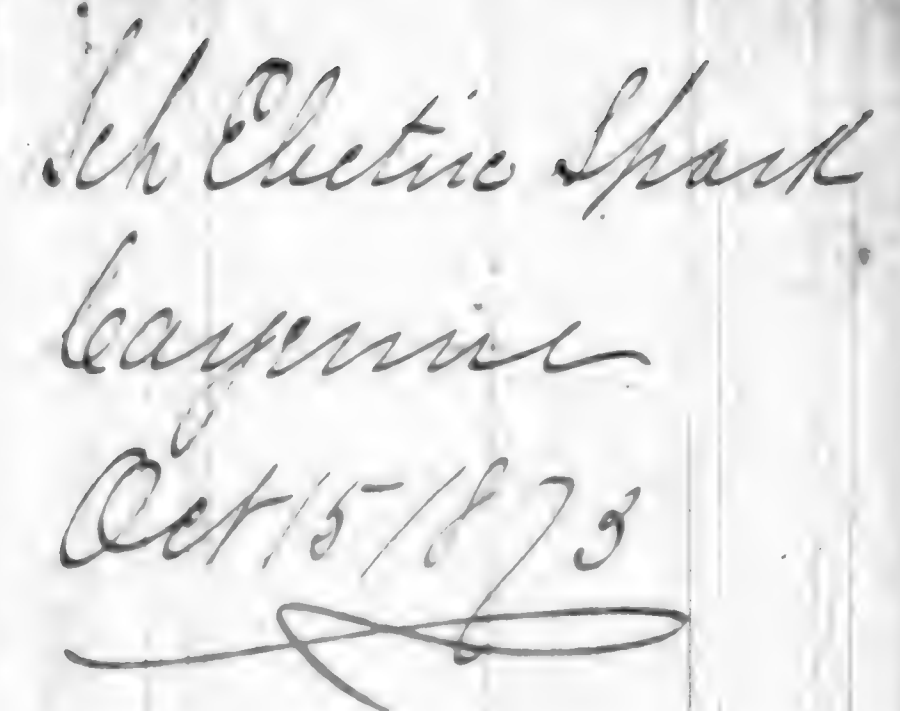 Sch Electric Spark
Cayenne
Oct 15 1873